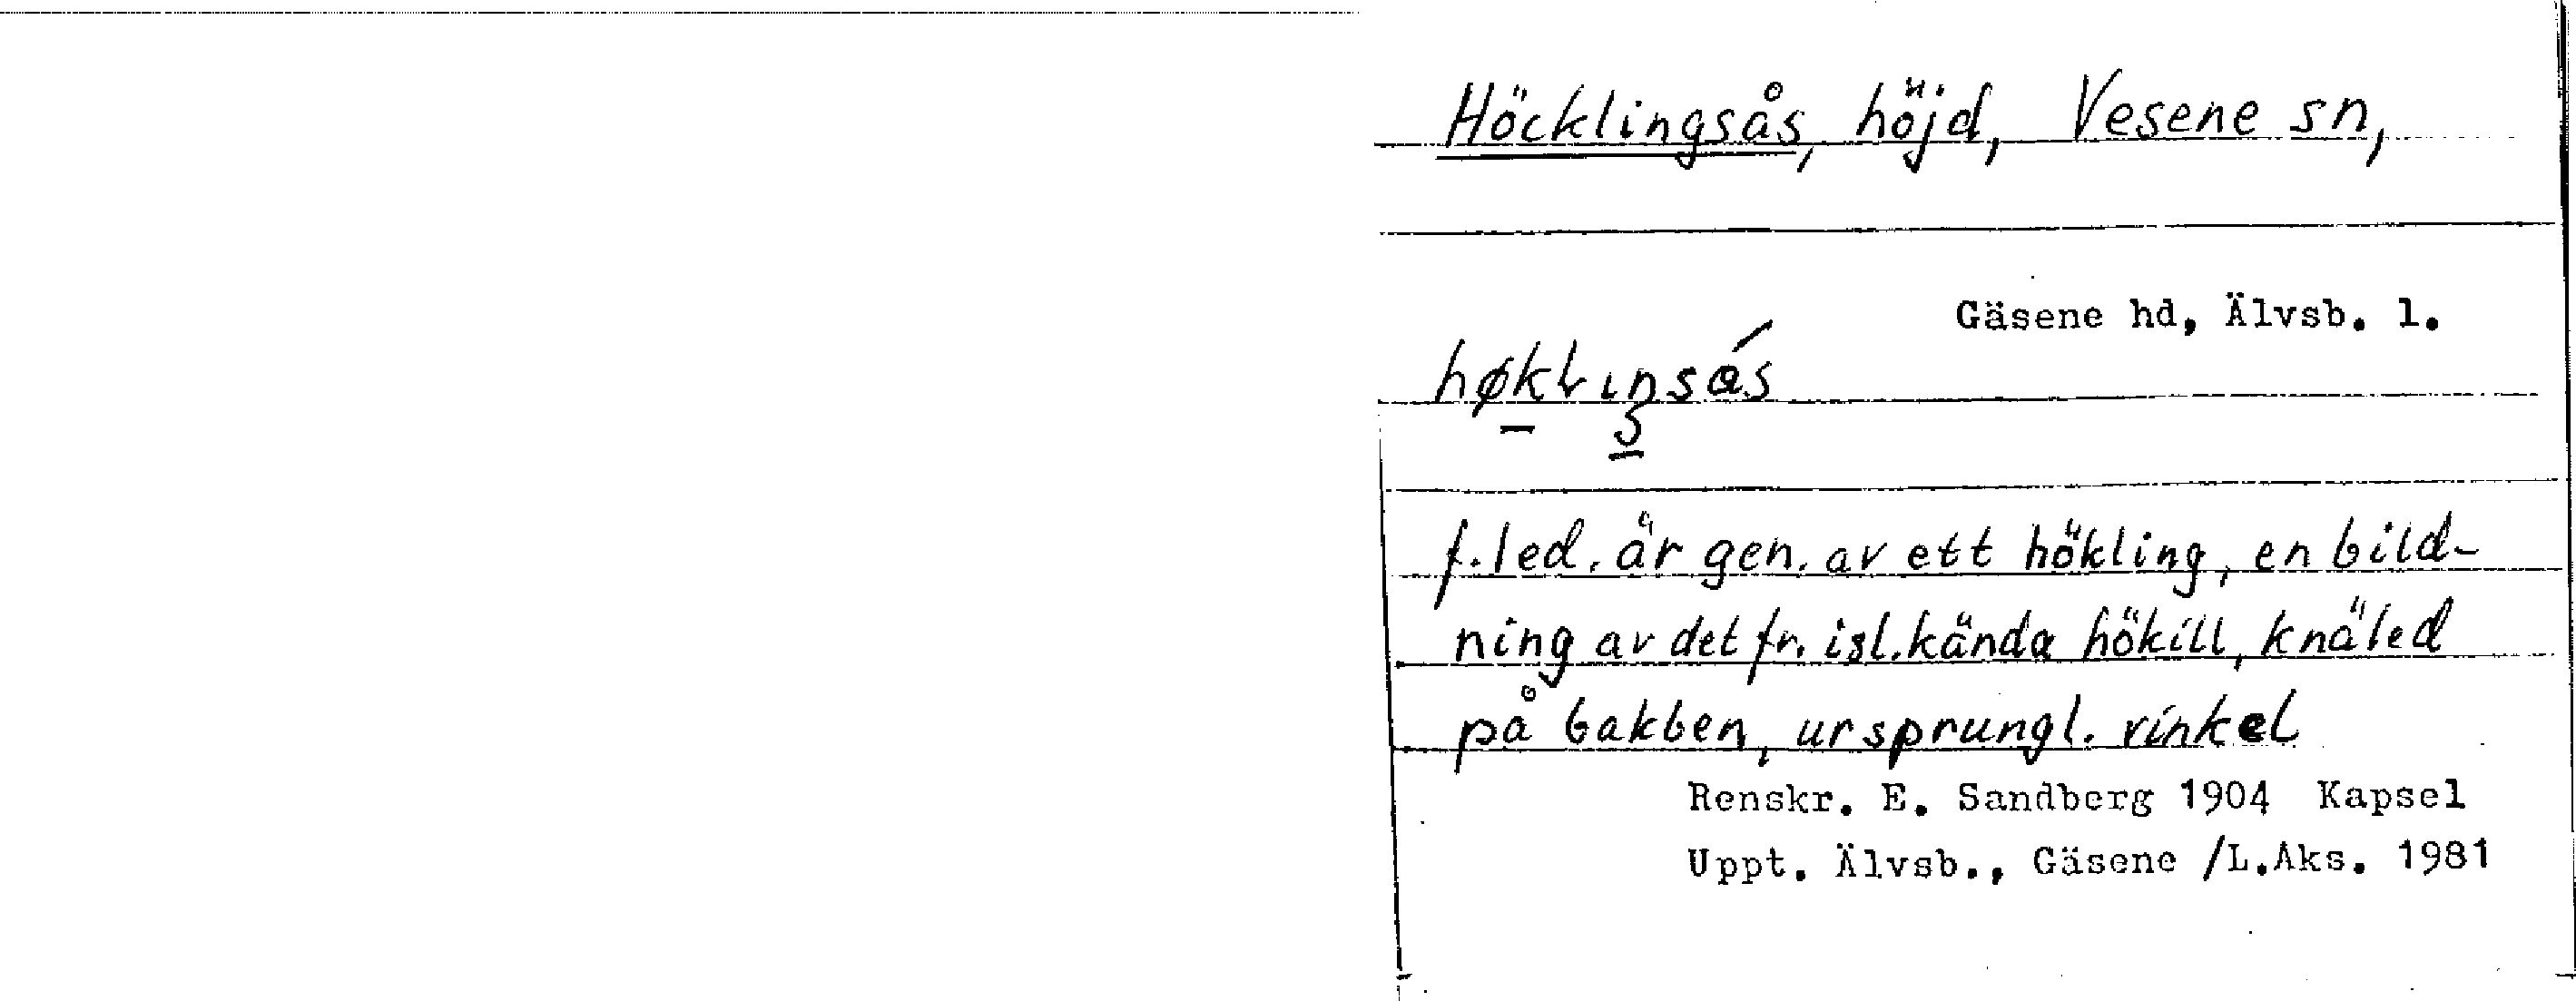 Höcklingsås, höjd, Vesene sn,
Gäsene hd, Älvsb. l.
f.led. är gen. av ett hökling, en bild-
ning av det fr. isl. kända hökill, knäled
på bakben, ursprungl. vinkel
Renskr. E. Sandberg 1904 Kapsel
Uppt. Älvsb., Gäsene /L.Aks. 1981